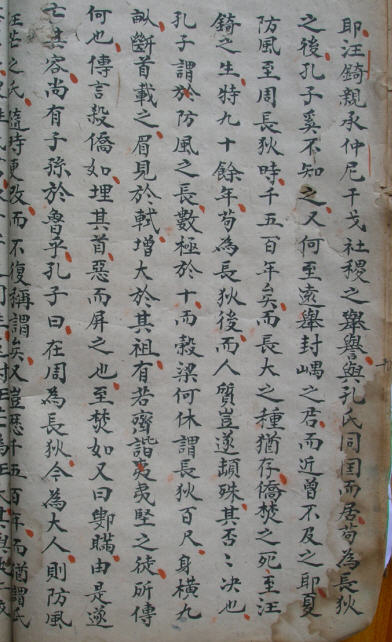 即汪錡親承仲尼干戈社稷之舉譽與孔氏同囯而居茍為長狄
之後孔子奚不知之又何至遠舉封嵎之君而近曽不及之耶夏
防風至周長狄時千五百年矣而長大之種猶存僑焚之死至汪
錡之生特九十餘年茍為長狄後而人質豈遂頓殊其否〻决也
孔子謂於防風之長數極於十而穀梁何休謂長狄百尺身横九
畆斷首載之眉見於軾增大於其祖有若齊諧夷堅之徒所傳
何也傳言殺僑如埋其首惡而屏之也至焚如又曰鄋瞞由是遂
亡其容尚有子孫於魯乎孔子曰在周為長狄今為大人則防風
汪芒之氏隨時更改而不復稱謂矣又豈歷千五百年而猶謂